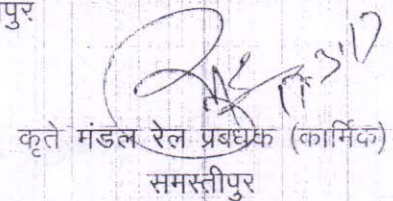 पुर
कृते मंडल रेल प्रबंधक (कार्मिक)
समस्तीपुर